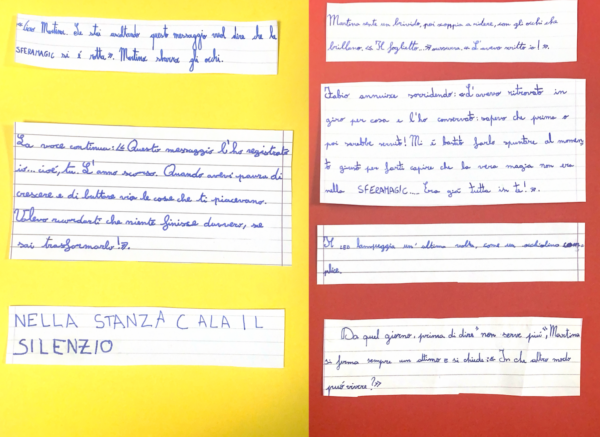 «Cara Martina. Se stai ascoltando questo messaggio vuol dire che la
SFERAMAGIC si è rotta». Martina sbarra gli occhi.
La voce continua: «Questo messaggio l'ho registrato
io... cioè, tu. L'anno scorso. Quando avevi paura di
crescere e di buttare via le cose che ti piacevano.
Volevo ricordarti che niente finisce davvero, se
sai trasformarlo!».
NELLA STANZA CALA IL
SILENZIO
Martina sente un brivido, poi scoppia a ridere, con gli occhi che
brillano. «Il foglietto... L'avevo scritto io!».
Fabio annuisce sorridendo: «L'avevo ritrovato in
giro per casa e l'ho conservato: sapevo che prima o
poi sarebbe servito! Mi è bastato farlo spuntare al momen
to giusto per farti capire che la vera magia non era
nella SFERAMAGIC... Era già tutta in te!».
Il lampeggia un' ultima volta, come un occhiolino com
plice.
Da quel giorno, prima di dire "non serve più", Martina
si ferma sempre un attimo e si chiede: «In che altro modo
può vivere?»